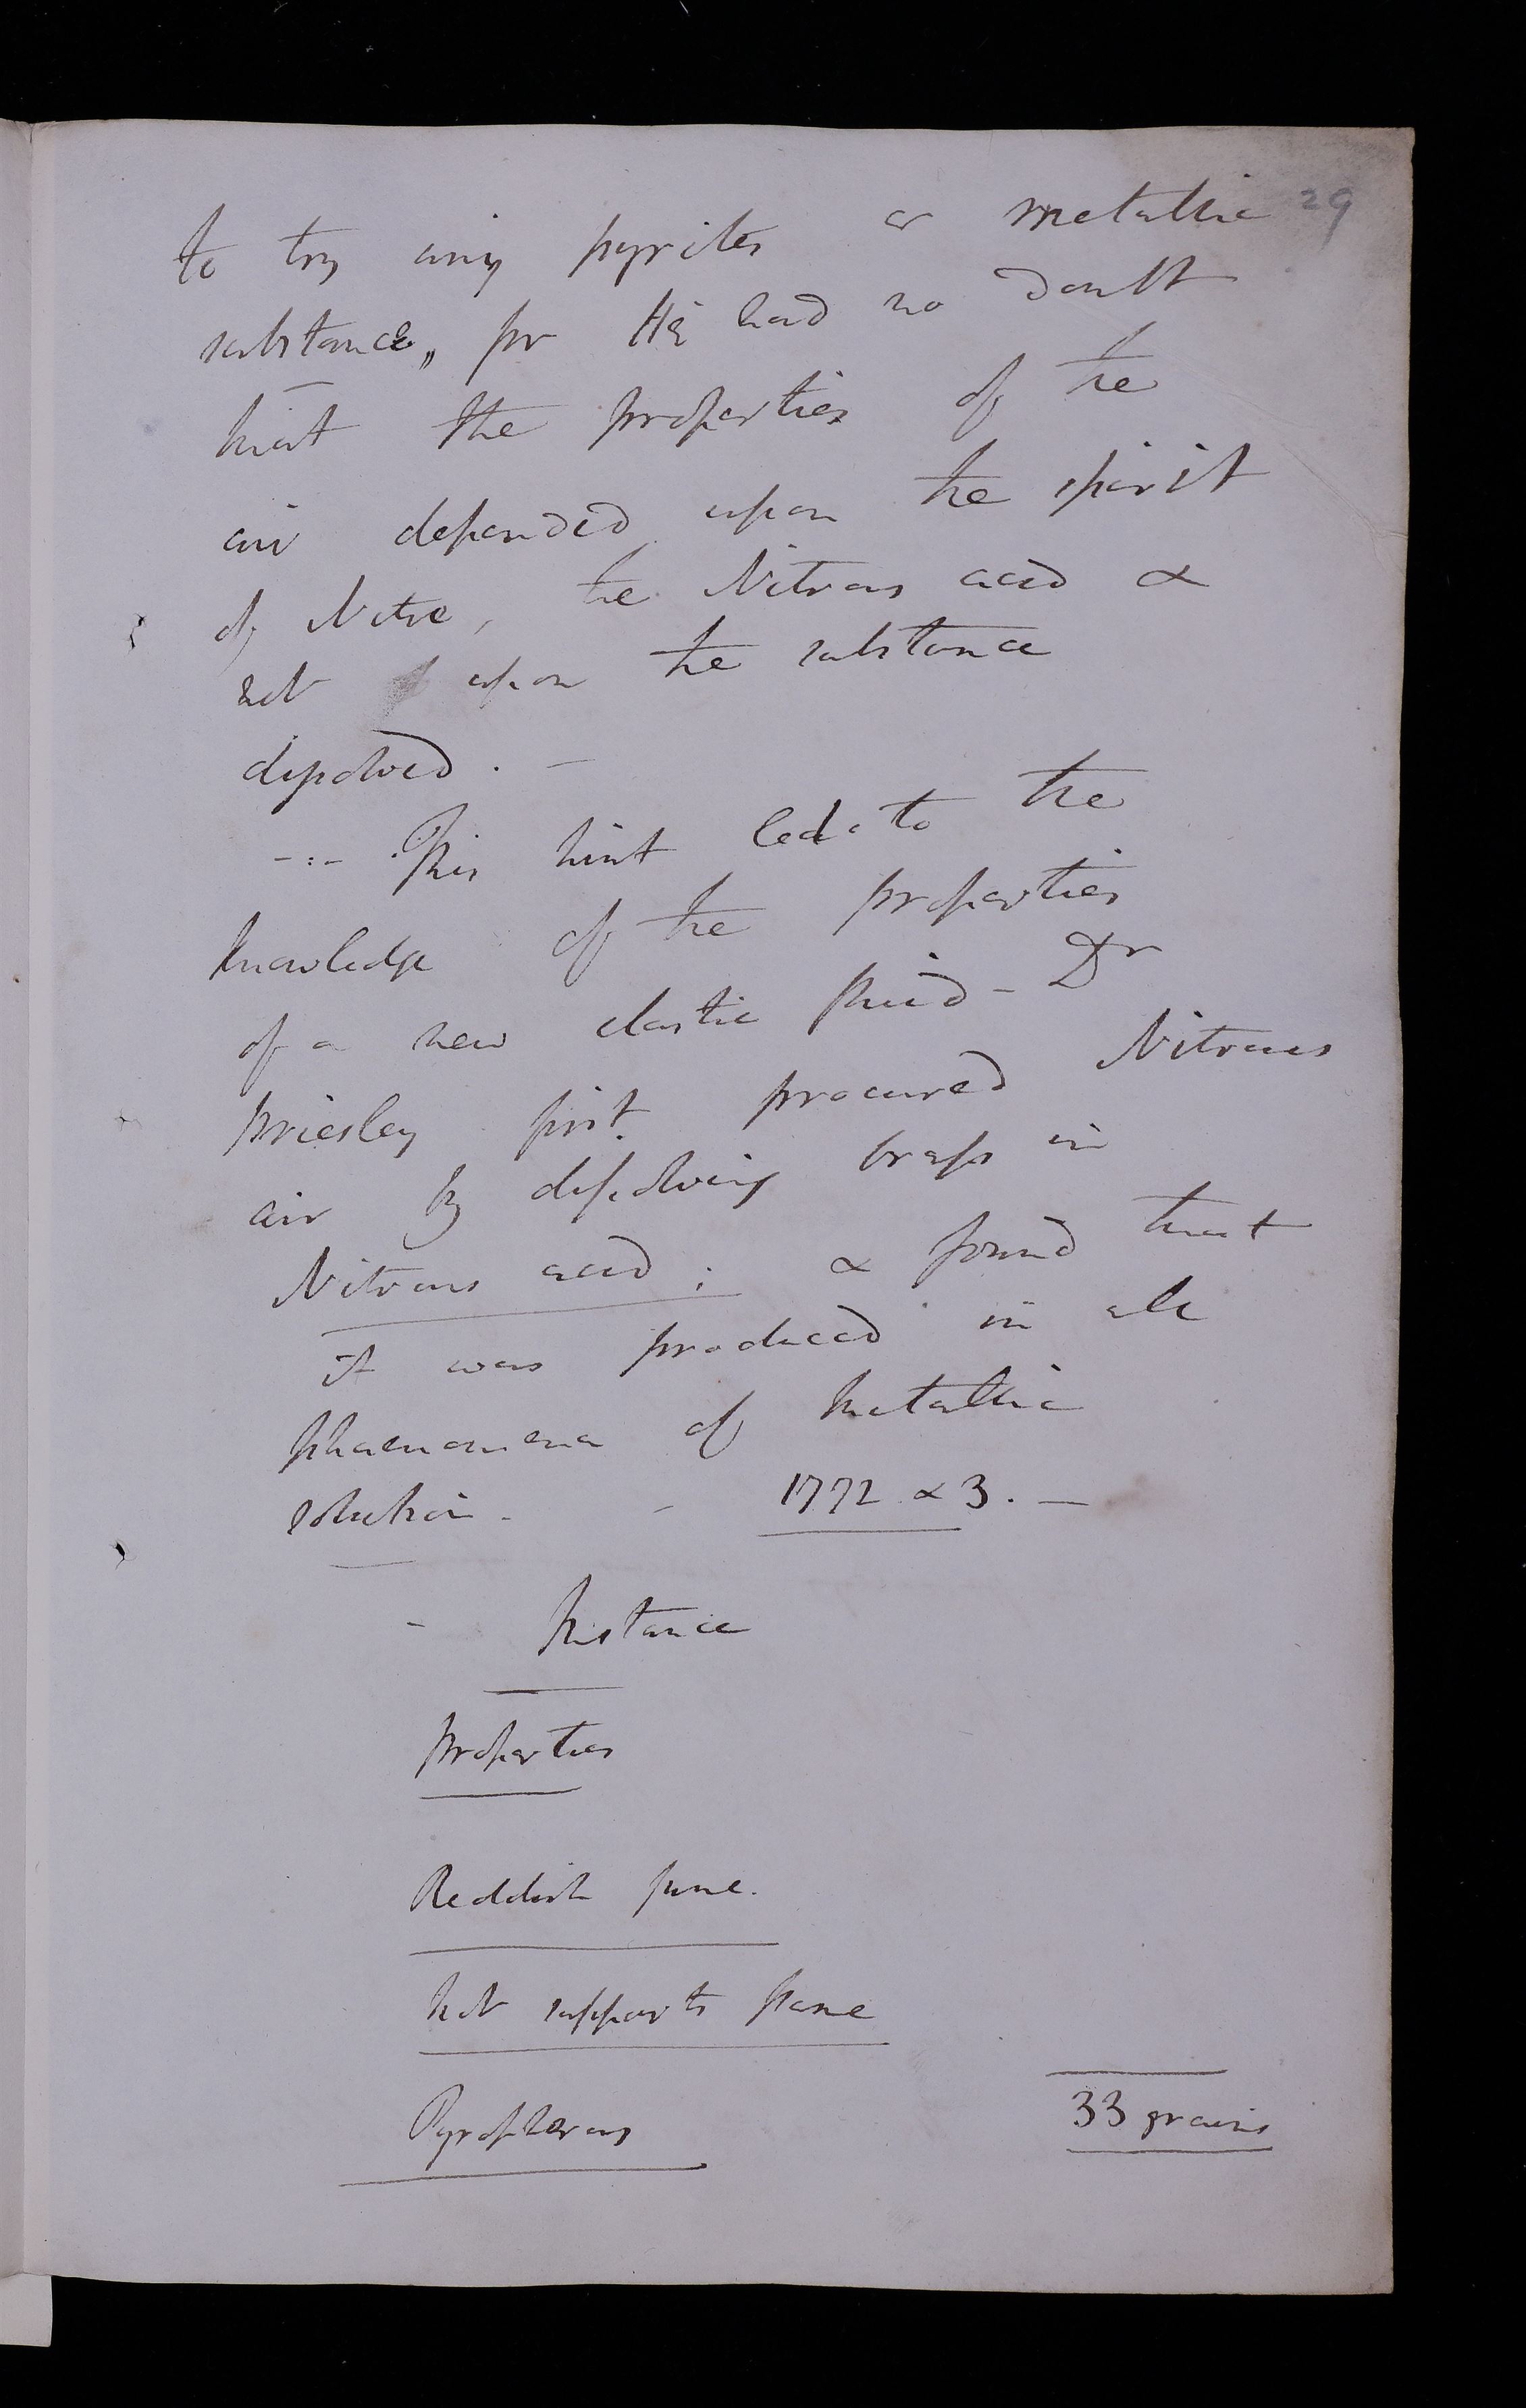 29
to try any pyrites or metallic
substance, for He had no doubt
that the properties of the
air depended upon the spirit
of Nitre, the Nitrous acid &
not upon the substance
dissolved. —
-:- This hint led to the
knowledge of the properties
of a new elastic fluid - Dr
Priesley first procured Nitrous
air by dissolving brass in
Nitrous acid; & found that
it was produced in all
phaenomena of metallic
solution. - 1772 & 3. —
- Instance
properties
Reddish fume.
not supports flame
Pyrophorus
33 grains